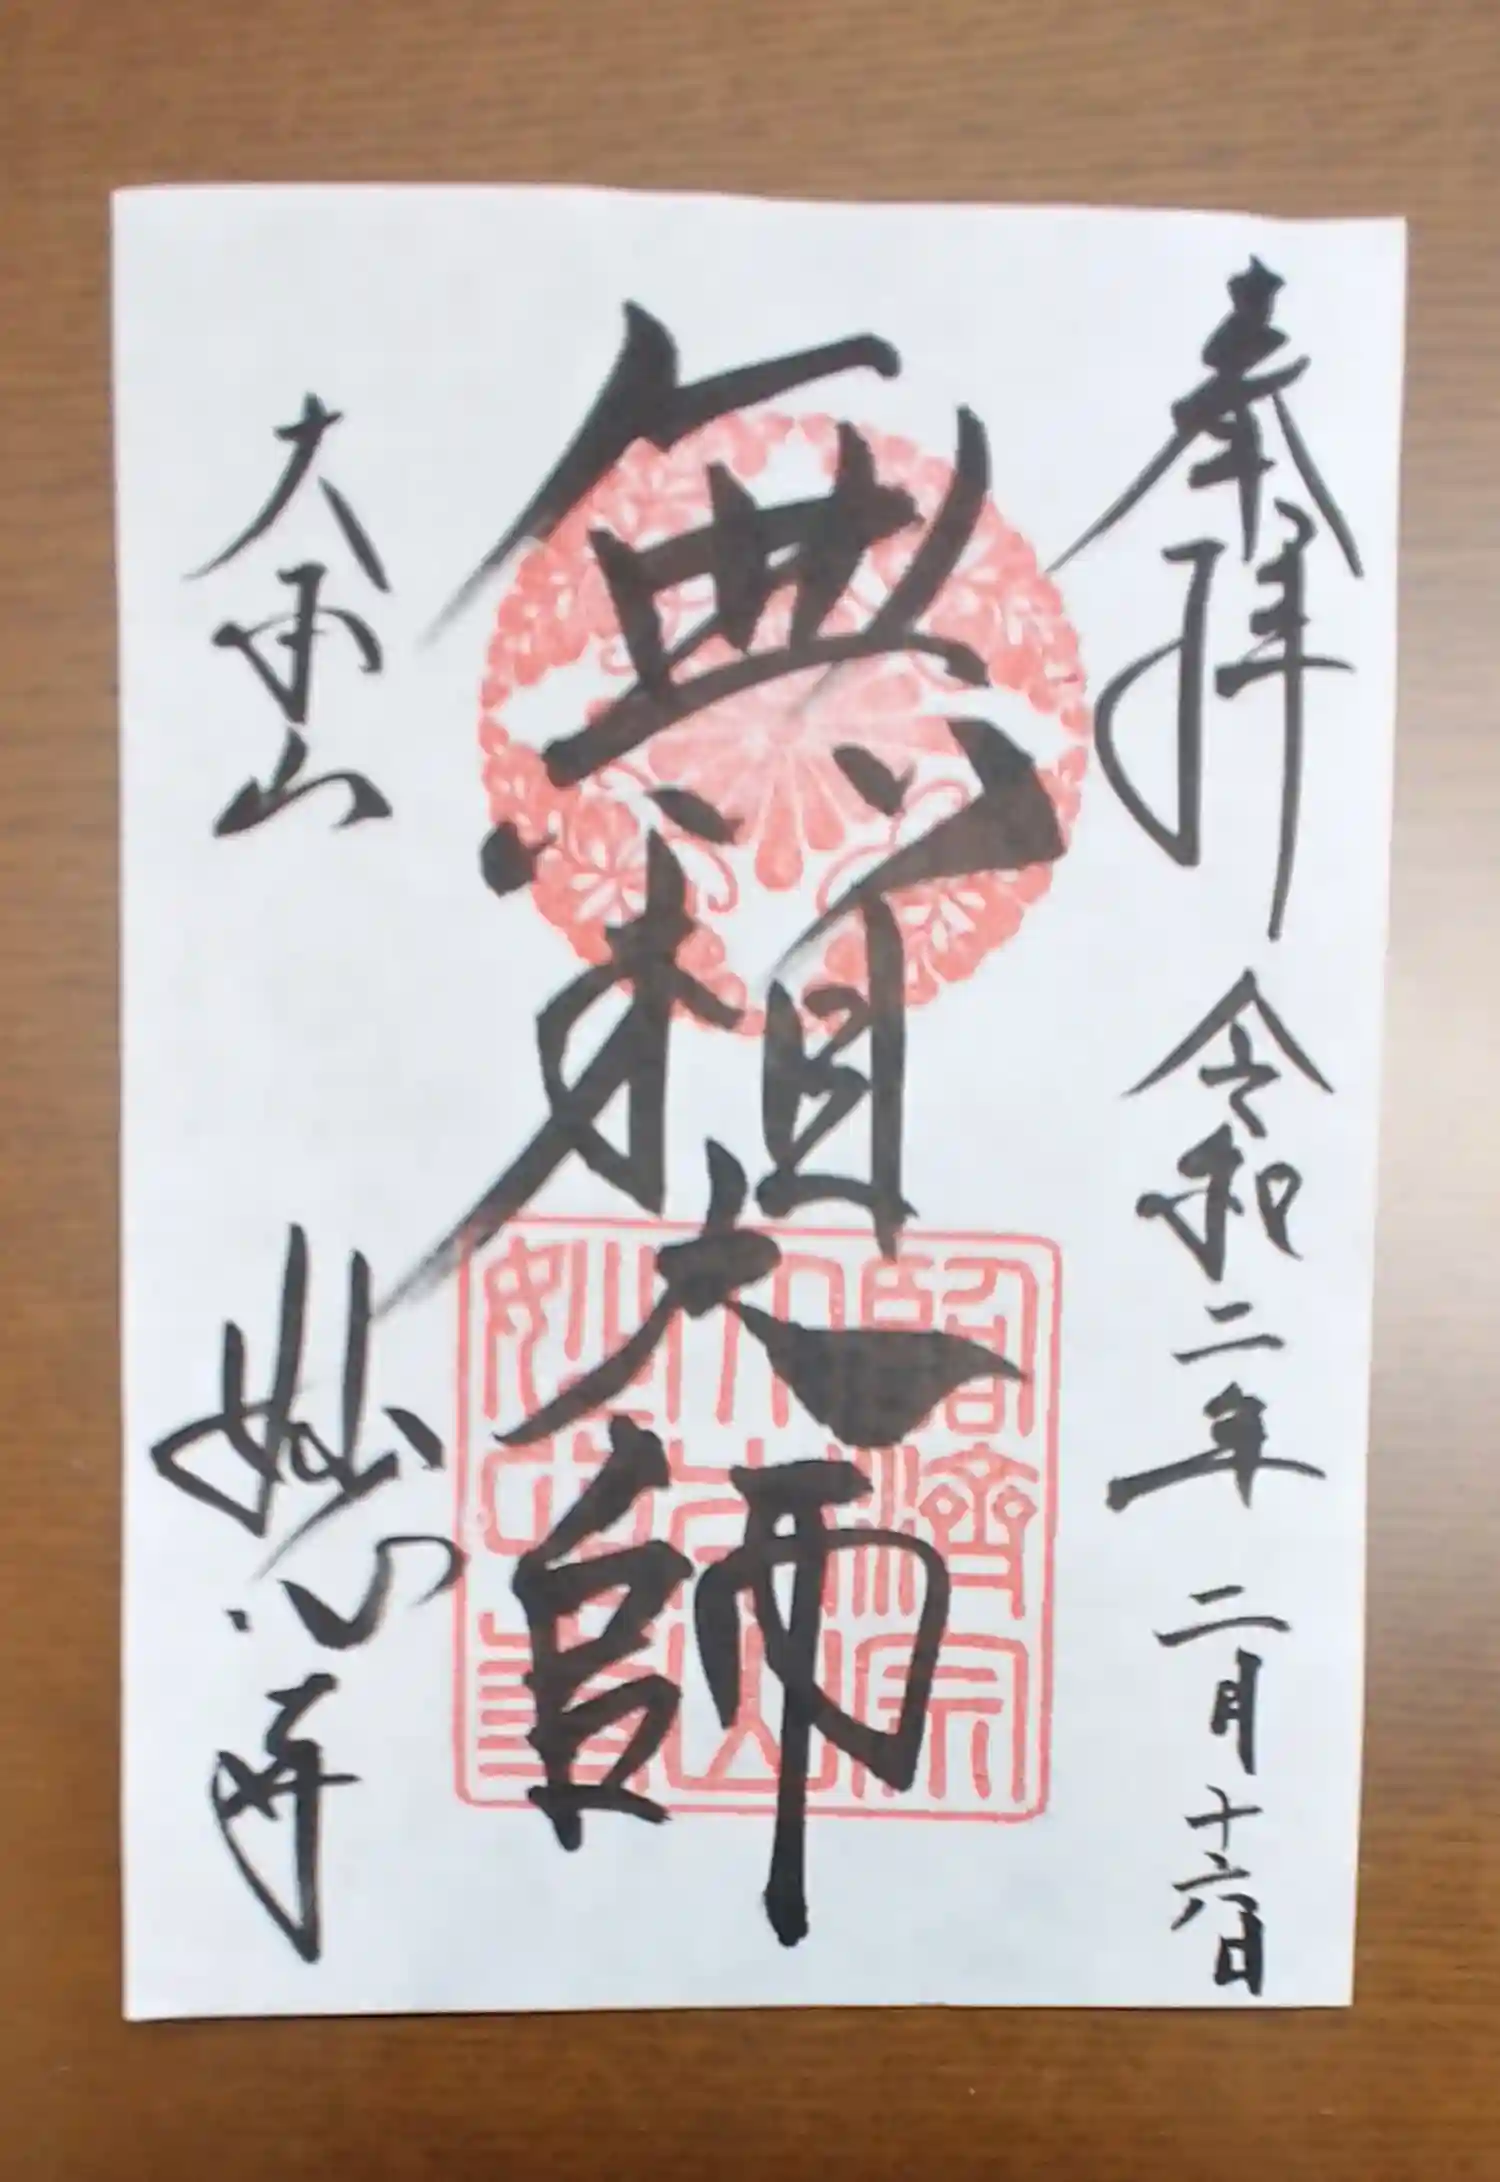 奉拝
令和二年 二月十六日
無相大師
大本山
妙心寺
臨濟宗
大本山
妙心寺